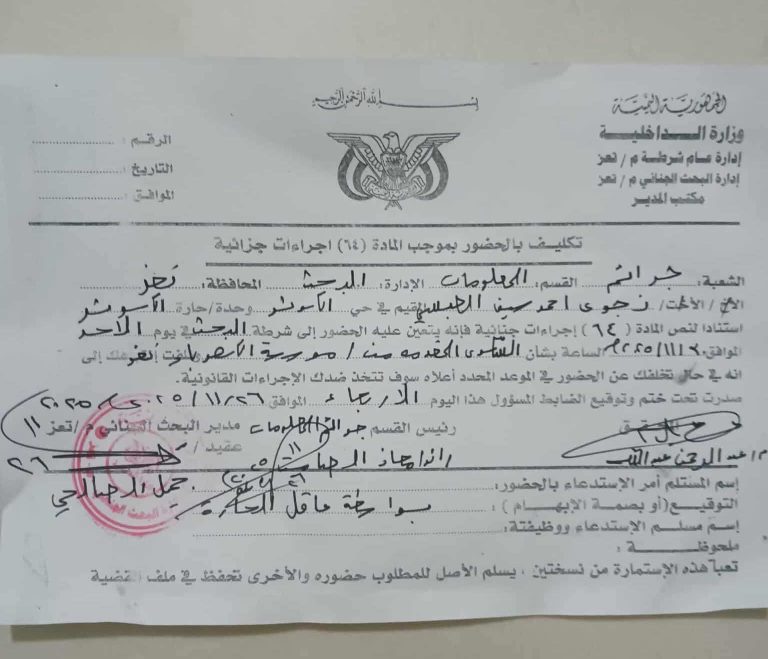 بسم الله الرحمن الرحيم
الجمهورية اليمنية
وزارة الداخلية
إدارة عام شرطة م / تعز
إدارة البحث الجنائي م / تعز
مكتب المدير
الرقم :
التاريخ :
الموافق :
تكليف بالحضور بموجب المادة (٦٤) اجراءات جزائية
الشعبة: جرائم القسم: المعلومات الإدارة: البحث المحافظة: تعز
الأخ / الأخت / نجوى احمد سيف المقيم في حي وحدة/حارة
استنادا لنص المادة ( ٦٤ ) إجراءات جنائية فإنه يتعين عليه الحضور إلى شرطة البحث في يوم الاحد
الموافق ٢٠٢٥/١١/٣٠ الساعة بشأن الشكوى المقدمه من / إلى
انه في حال تخلفك عن الحضور في الموعد المحدد أعلاه سوف تتخذ ضدك الإجراءات القانونية.
صدرت تحت ختم وتوقيع الضابط المسؤول هذا اليوم الاربعاء الموافق ٢٠٢٥/١١/٢٦
رئيس القسم جرائم المعلومات مدير البحث الجنائي م / تعز
عبد الرحمن رائد عقيد /
إسم المستلم أمر الإستدعاء بالحضور:
التوقيع (أو بصمة الإبهام) : بواسطة عاقل الحارة
إسم مسلم الإستدعاء ووظيفتة :
ملحوظة :
تعبأ هذه الإستمارة من نسختين ، يسلم الأصل للمطلوب حضوره والأخرى تحفظ في ملف القضية